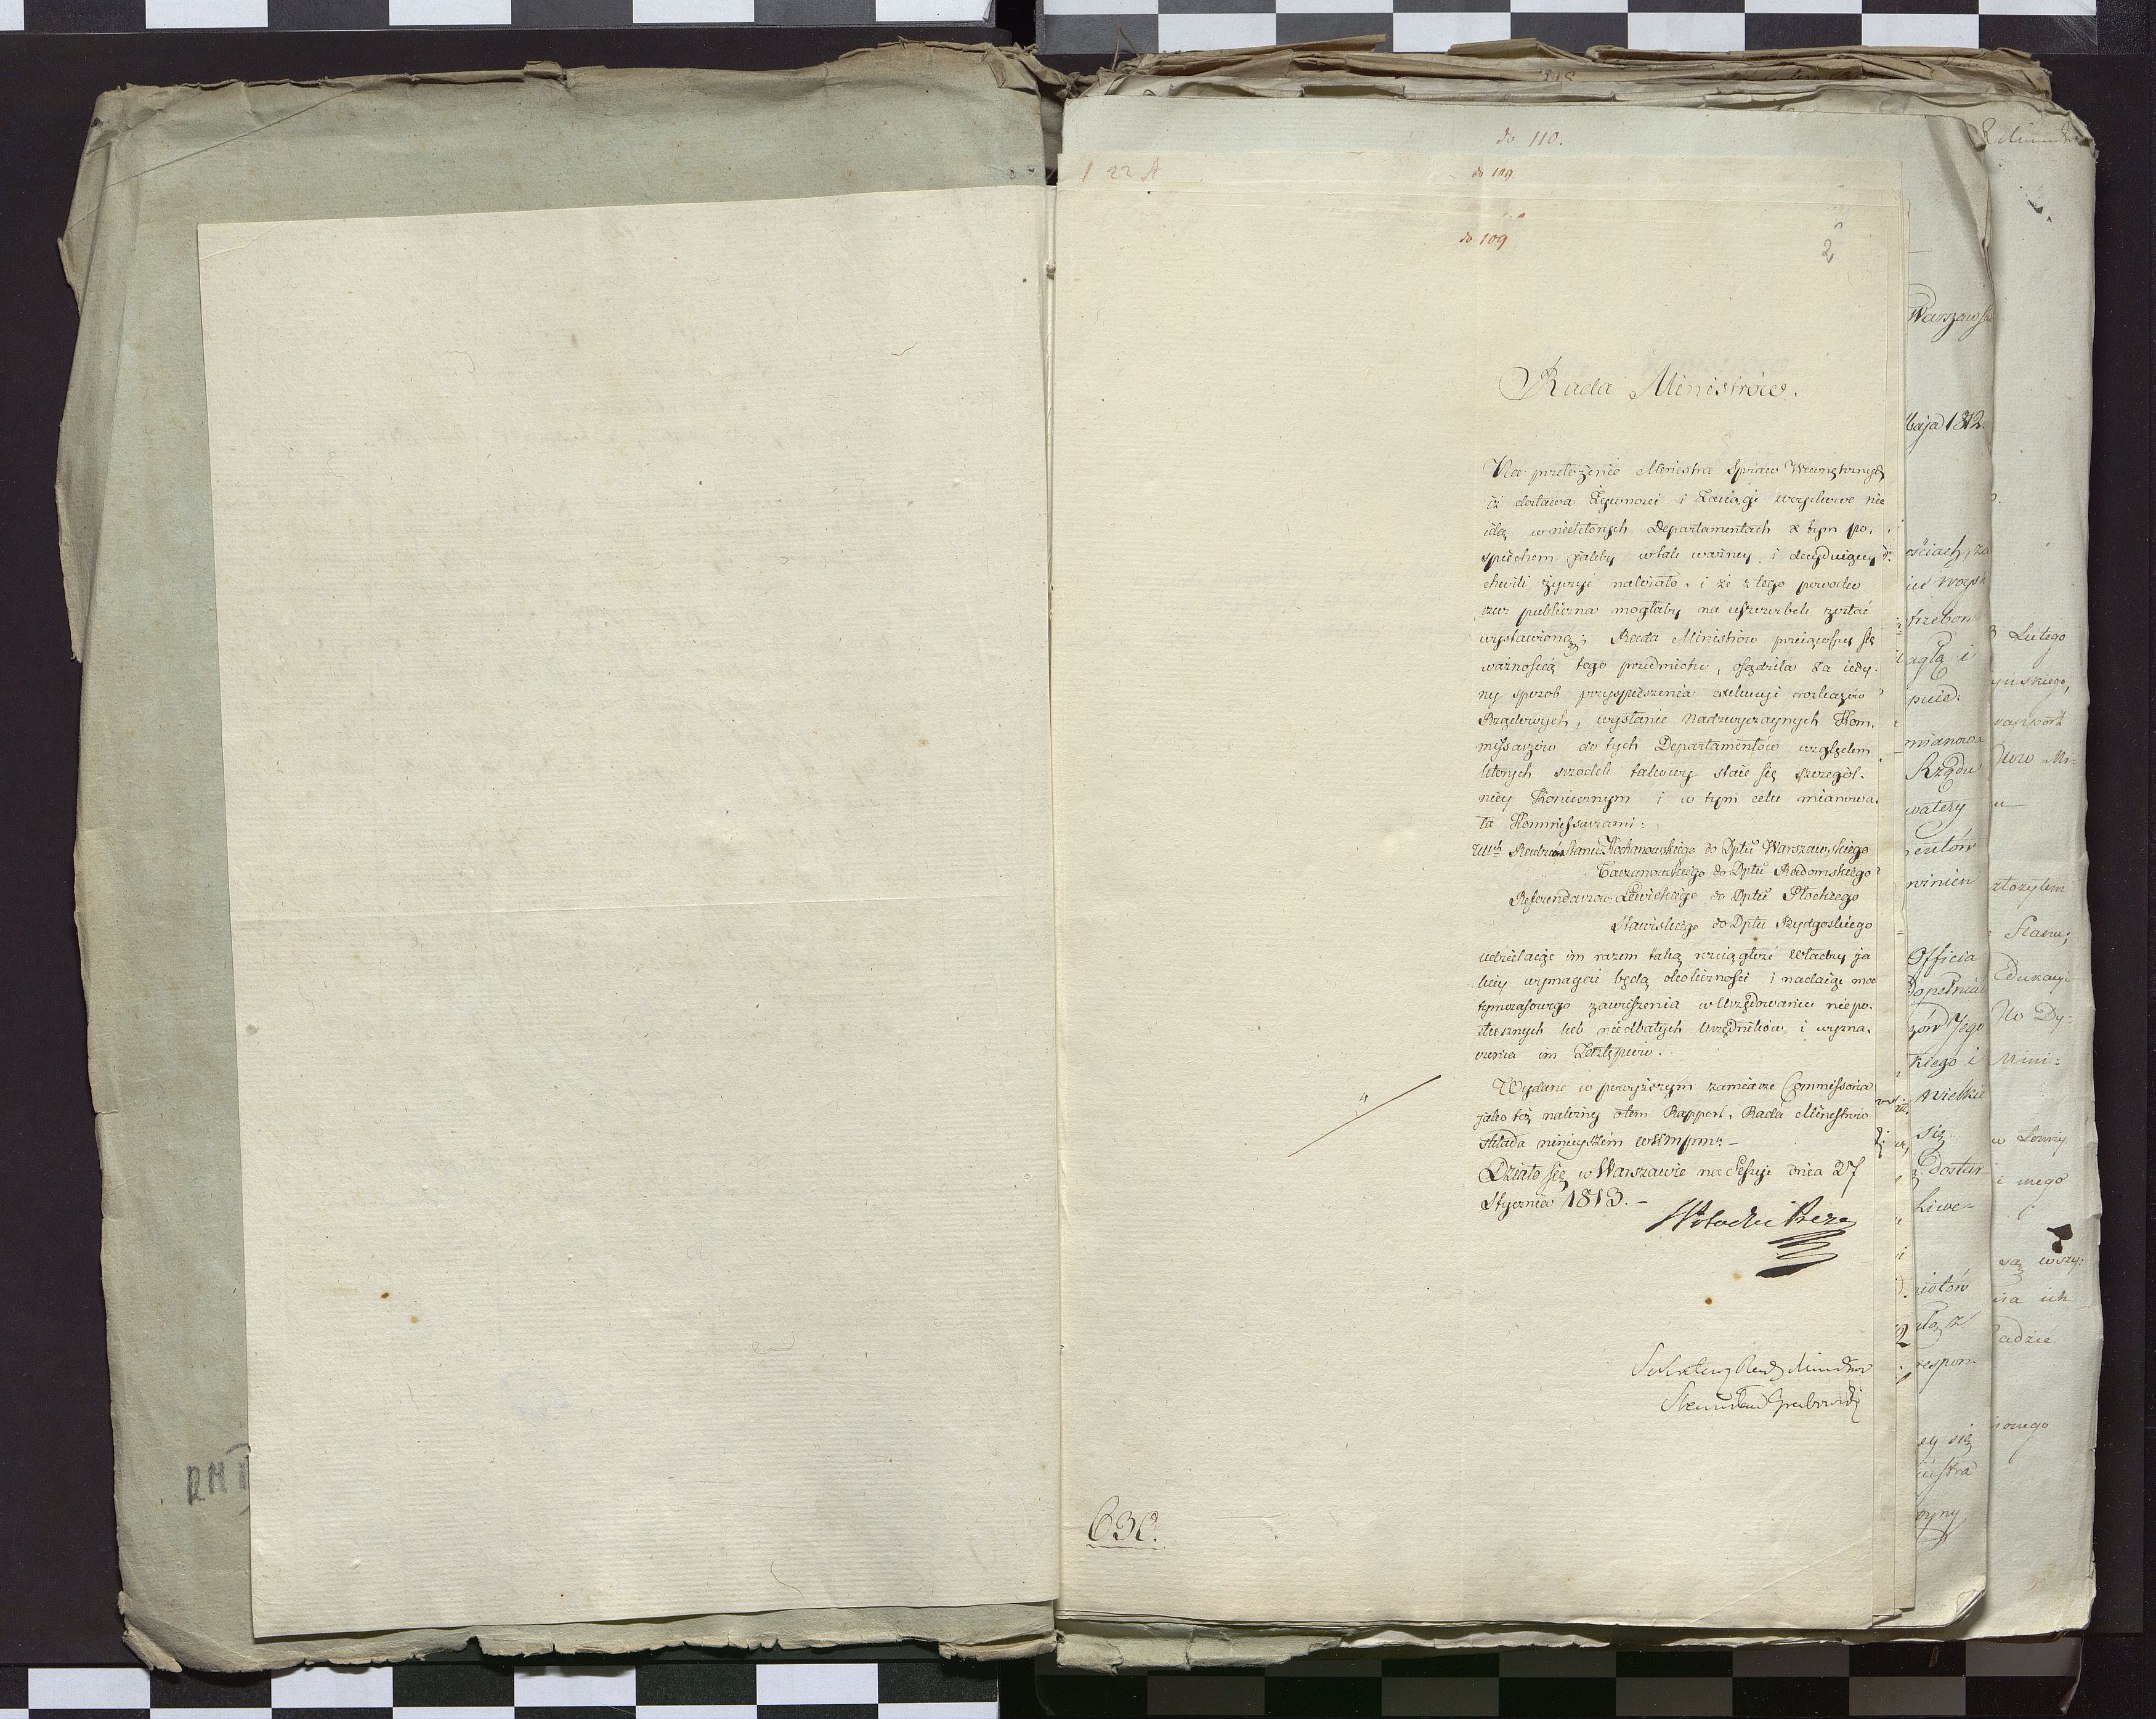 do 110.
1 22 A
do 109.
do 109
2
Rada Ministrów.
Na przełożenie Ministra Spraw Wewnętrznych
iż dostawa Żywnosci i Zaciągi woyskowe nie
idą w niektórych Departamentach z tym po-
spiechem jakby w tak ważney i decyduiącey
chwili życzyć należało, i że z tego powodu
rzecz publiczna mogłaby na uszczerbek zostać
wystawioną; Rada Ministrów przeiąwszy się
ważnością tego przedmiotu, osądziła za iedy-
ny sposob przyspieszenia exekucyi rozkazów
Rządowych, wysłanie Nadzwyczaynych Kom-
missarzów do tych Departamentów względem
których srzodek takowy staie się szczegól-
niey Koniecznym i w tym celu mianowa-
ła Kommissarzami:
Radzców Stanu Kochanowskiego do Dptu Warszawskiego
do Dptu Radomskiego
Referendarzów Lewickiego do Dptu Płockiego
Stawiskiego do Dptu Bydgoskiego
udzielaiąc im razem taką rozciągłość Władzy ja
kiey wymagać będą okoliczności i nadaiąc moc
tymczasowego zawieszenia w Urzędowaniu niepo-
słusznych lub niedbałych Urzędników i wyzna-
czenia im Zastępców.
Wydane w powyższym zamiarze Commissoria
jako też należny o tem Rapport, Rada Ministrów
składa ninieyszém
Działo się w Warszawie na Sessyi dnia 27
Stycznia 1813. –
Sekretarz Rady Ministrów
Stanisław Grabowski
630.
RM
Warszaws
Maja 1812.
Lutego
Rządu
Stanu;
Officia
Edukacyi
No Dy-
kiego i
Mini-
wielkie
się
onego